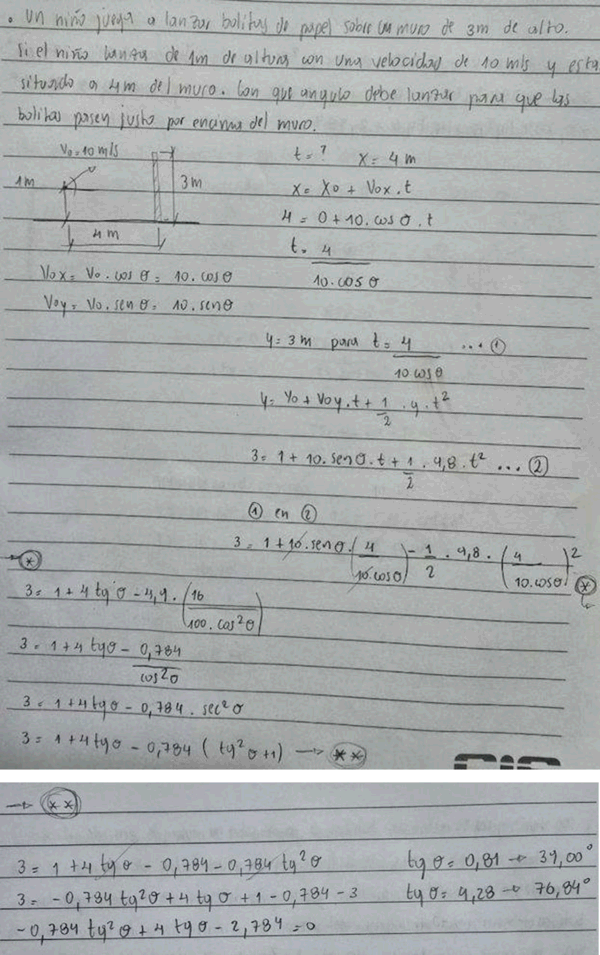 • Un niño juega a lanzar bolitas de papel sobre un muro de 3m de alto.
Si el niño lanza de 1m de altura con una velocidad de 10 m/s y esta
situado a 4m del muro. Con que angulo debe lanzar para que las
bolitas pasen justo por encima del muro.
V₀=10 m/s
1m
3m
4m
t=? x=4m
x= x₀ + V₀x.t
4= 0+10.cosθ.t
t= 4/10.cosθ
V₀x= V₀.cosθ= 10.cosθ
V₀y= V₀.senθ= 10.senθ
y=3m para t= 4/10cosθ ...①
y= y₀+V₀y.t+1/2.g.t²
3= 1+10.senθ.t+1/2.9,8.t² ...②
① en ②
3= 1+10.senθ.(4/10.cosθ)-1/2.9,8.(4/10.cosθ)²
→* *
3= 1+4tgθ-4,9.(16/100.cos²θ)
3= 1+4tgθ-0,784/cos²θ
3= 1+4tgθ-0,784.sec²θ
3= 1+4tgθ-0,784(tg²θ+1) → **
→ **
3= 1+4tgθ-0,784-0,784tg²θ tgθ=0,81 → 39,00°
3= -0,784tg²θ+4tgθ+1-0,784-3 tgθ=4,28 → 76,84°
-0,784tg²θ+4tgθ-2,784=0